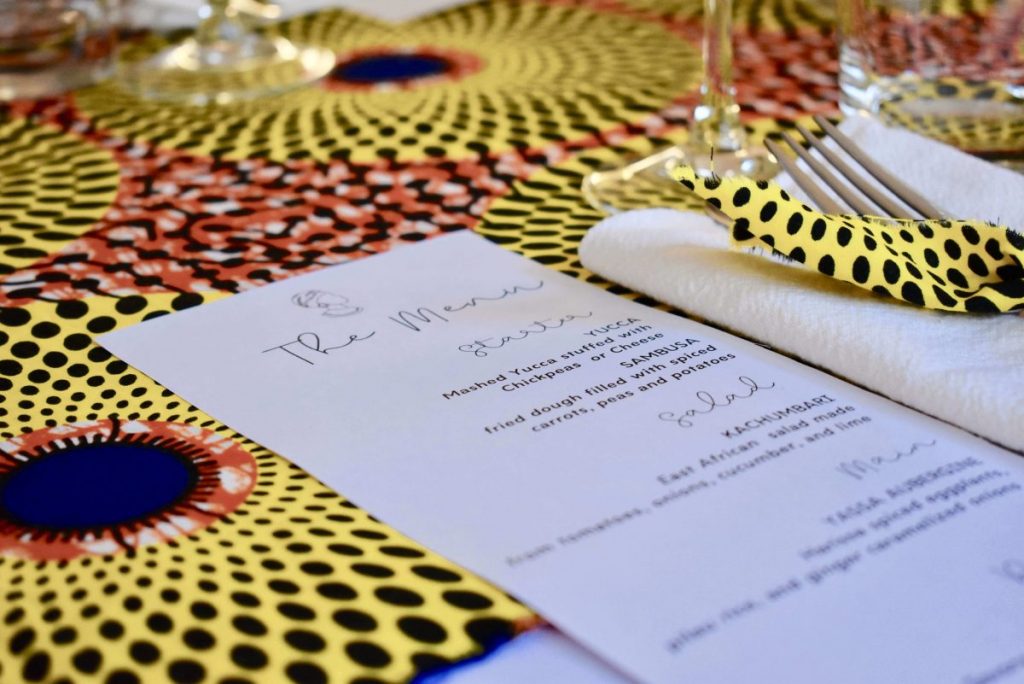 The Menu
starter
YUCCA
Mashed Yucca stuffed with
Chickpeas or Cheese
SAMBUSA
fried dough filled with spiced
carrots, peas and potatoes
salad
KACHUMBARI
East African salad made
from tomatoes, onions, cucumber, and lime
Main
YASSA AUBERGINE
spiced eggplants,
pilau rice, and ginger caramelized onions